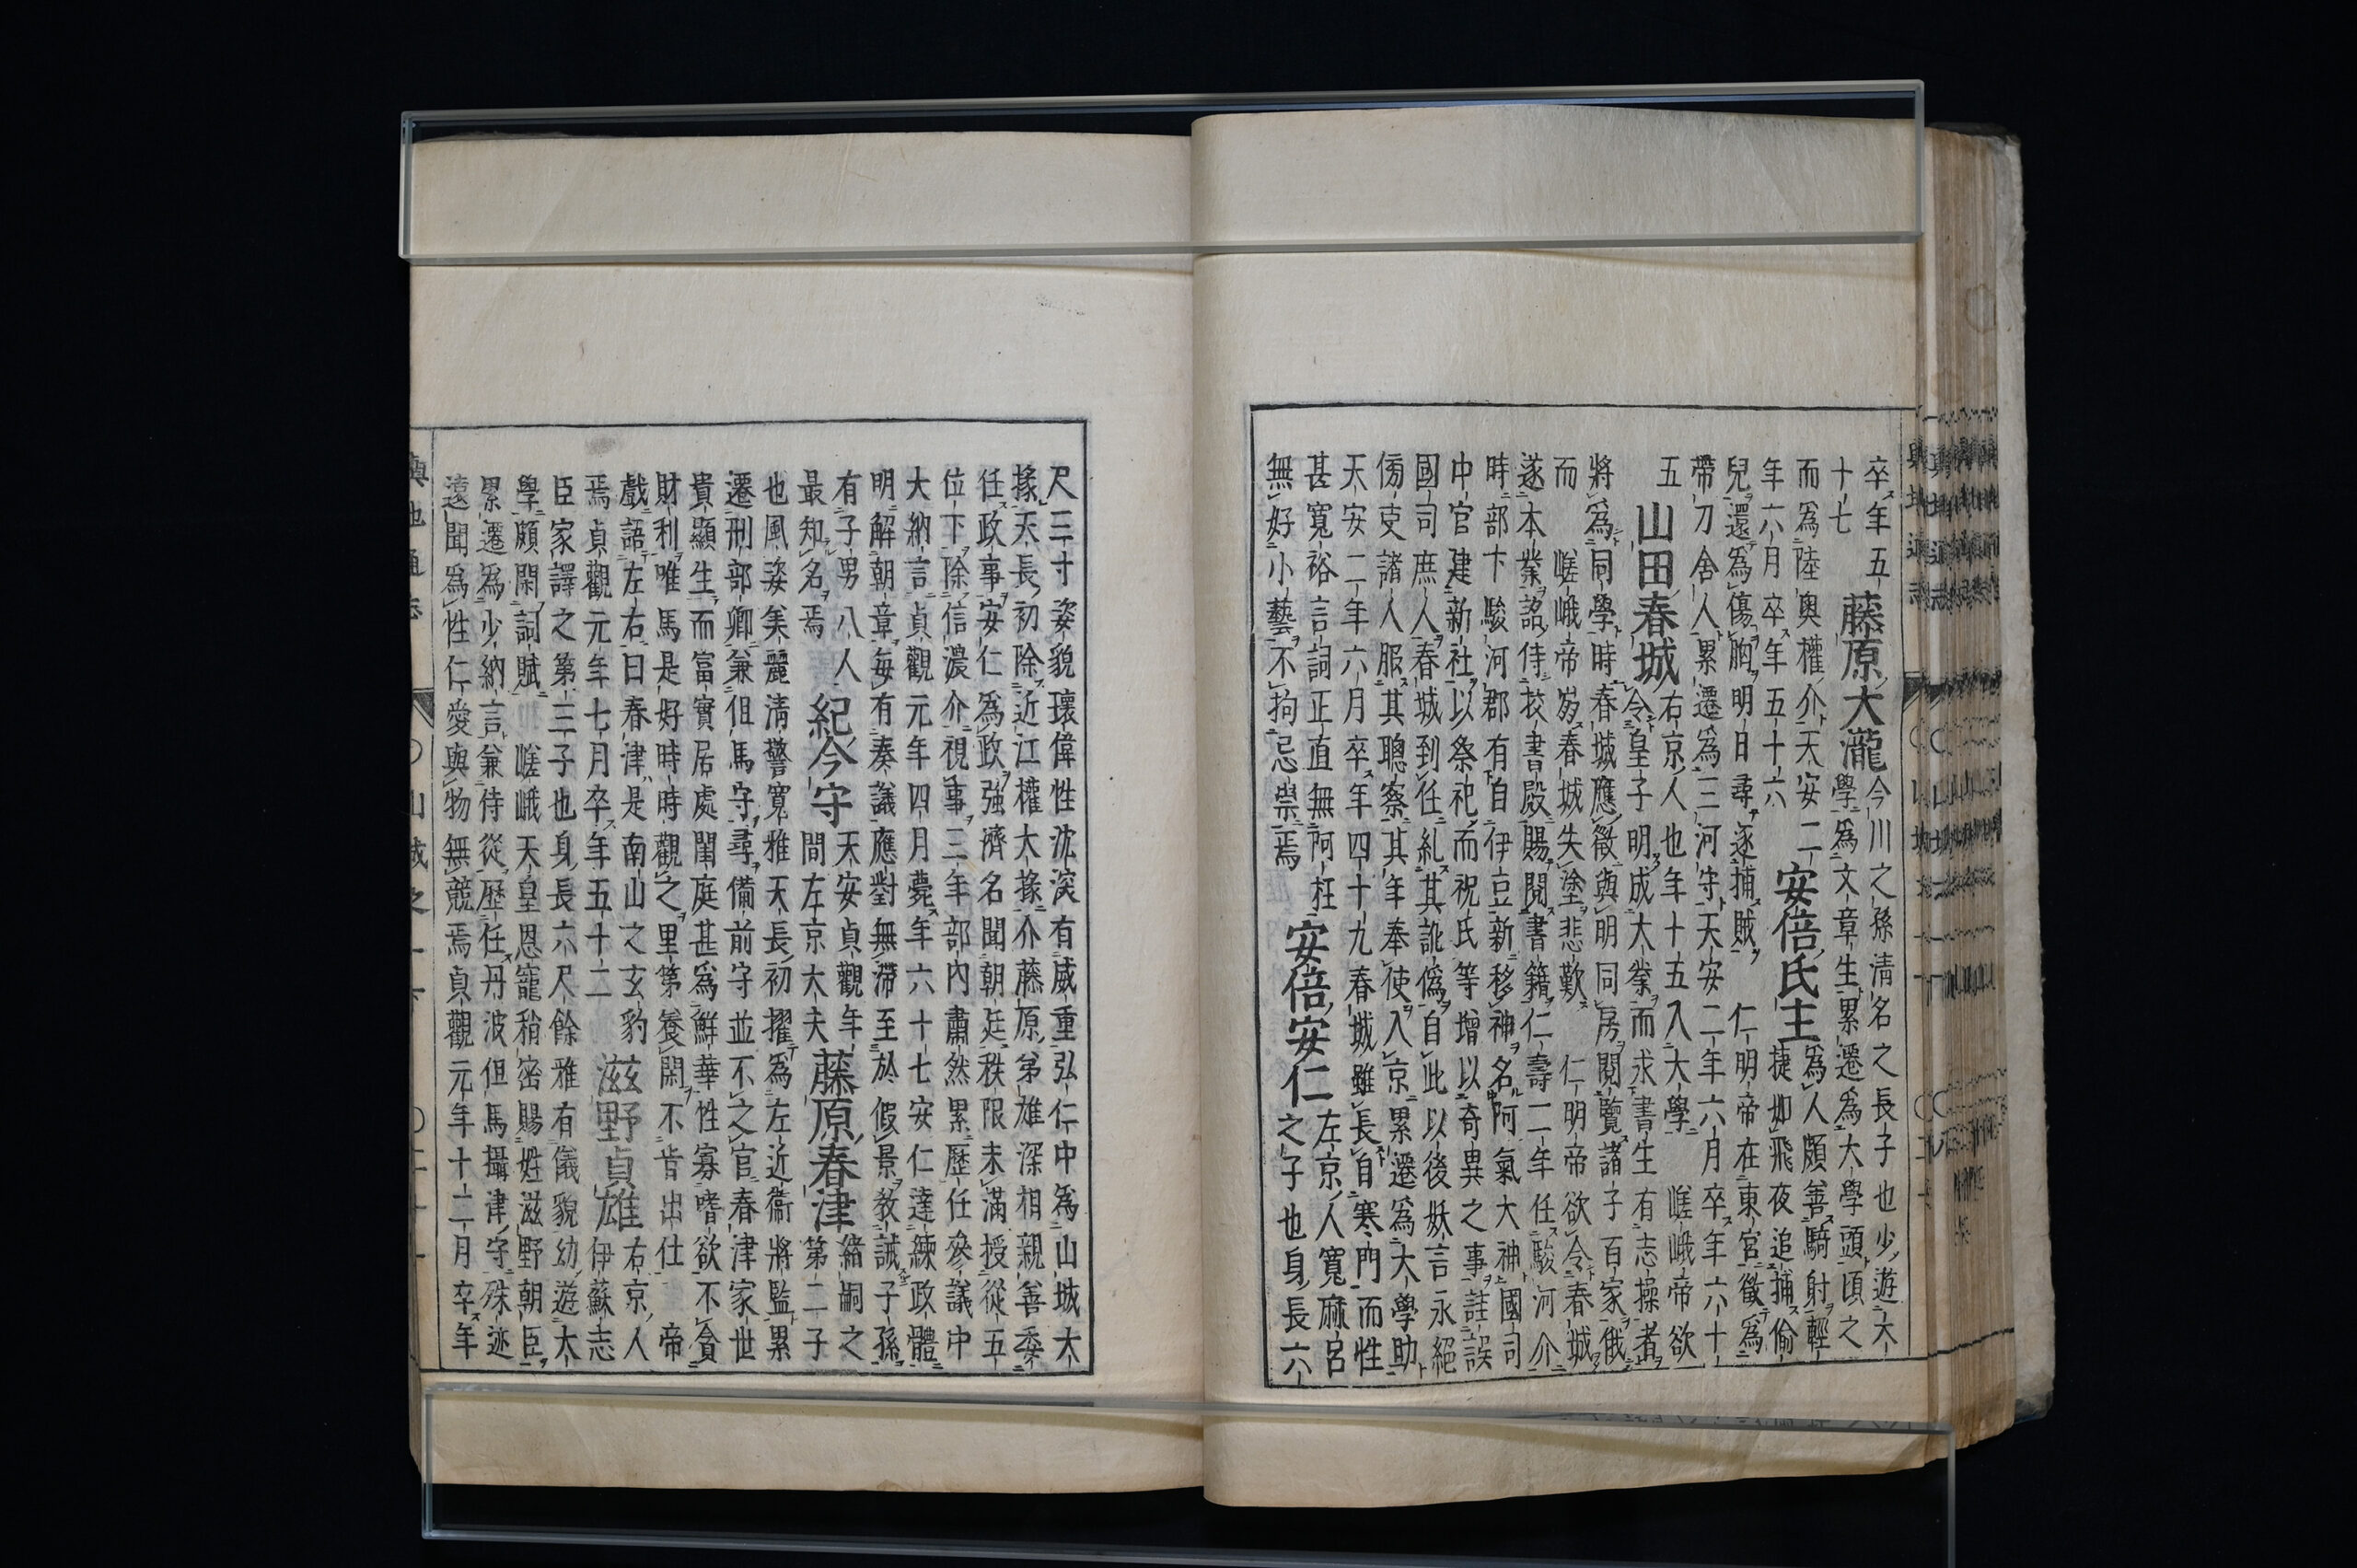 卒年五　藤原大瀧　今川之孫清名之長子也少遊大
十七　學為文章生累遷為大學頭頃之
而為陸奧權介天安二　安倍氏主　為人頗善騎射輕
年六月卒年五十六　捷如飛夜追捕偷
兒還為傷胸明日尋逐捕賊　仁明帝在東宮徵為
帶刀舍人累遷為三河守天安二年六月卒年六十
五　山田春城　右京人也年十五入大學　嵯峨帝欲
令皇子明成大業而求書生有志操者
將為同學時春城應徵與明同房閱覽諸子百家俄
而　嵯峨帝崩春城失塗悲歎　仁明帝欲令春城
遂本業詔侍校書殿賜閱書籍仁壽二年任駿河介
時部下駿河郡有自伊豆新移神名阿氣大神國司
中官建新社以祭祀而祝氏等增以奇異之事詿誤
國司庶人春城到任糺其訛偽自此以後妖言永絕
傍吏諸人服其聰察其年奉使入京累遷為大學助
天安二年六月卒年四十九春城雖長自寒門而性
甚寬裕言詞正直無阿枉　安倍安仁　左京人寬麻呂
無好小藝不拘忌祟焉　之子也身長六
尺三寸姿貌瓌偉性沈深有威重弘仁中為山城大
掾天長初除近江權大掾介藤原弟雄深相親善委
任政事安仁為政強濟名聞朝廷秩限未滿授從五
位下除信濃介視事三年部內肅然累歷任參議中
大納言貞觀元年四月薨年六十七安仁達練政體
明解朝章每有奏議應對無滯至於假景教誡子孫
有子男八人　紀今守　天安貞觀年　藤原春津　緒嗣之
最知名焉　間左京大夫　第二子
也風姿美麗清警寬雅天長初擢為左近衛將監累
遷刑部卿兼但馬守尋備前守並不之官春津家世
貴顯生而富實居處閨庭甚為鮮華性寡嗜欲不貪
財利唯馬是好時時觀之里第養閑不肯出仕　帝
戲語左右曰春津是南山之玄豹　滋野貞雄　右京人
焉貞觀元年七月卒年五十二　伊蘇志
臣家譯之第三子也身長六尺餘雅有儀貌幼遊大
學頗閑詞賦　嵯峨天皇恩寵稍密賜姓滋野朝臣
累遷為少納言兼侍從歷任丹波但馬攝津守殊迹
遠聞為性仁愛與物無競焉貞觀元年十二月卒年